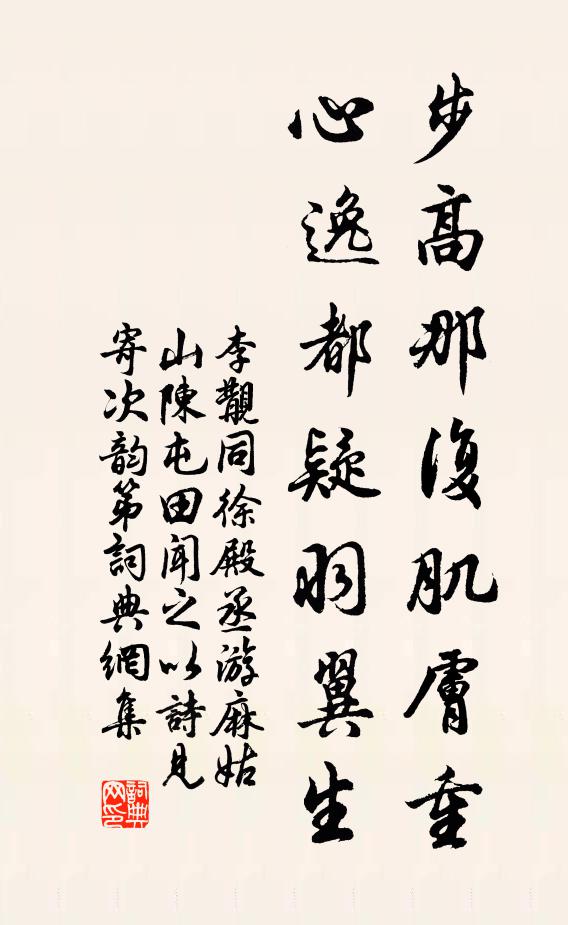 步高那復肌膚重
心逸都疑羽翼生
李覯同徐殿丞游麻姑
山陳屯田聞之以詩見
寄次韵第詞典網集
詞典
网印